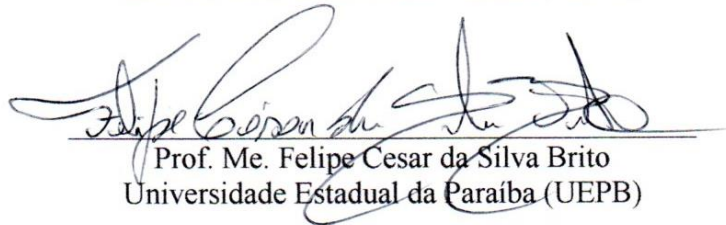 Felipe César da Silva Brito
Prof. Me. Felipe Cesar da Silva Brito
Universidade Estadual da Paraíba (UEPB)